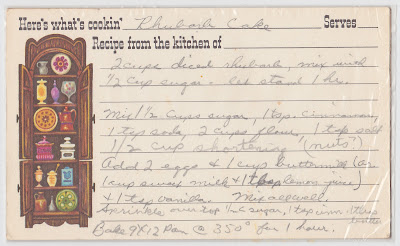 Here's what's cookin' Rhubarb Cake Serves
Recipe from the kitchen of
2 cups diced rhubarb, mix with
1/2 cup sugar - let stand 1 hr.
Mix 1 1/2 cups sugar, 1 tsp. cinnamon,
1 tsp soda, 2 cups flour, 1 tsp salt
1/2 cup shortening (nuts?)
Add 2 eggs & 1 cup buttermilk (or
1 cup sweet milk & 1 tbsp lemon juice)
& 1 tsp vanilla. Mix all well.
Sprinkle over top 1/2 c sugar, 1 tsp cinn. 1 tbsp
butter
Bake 9X12 Pan @ 350° for 1 hour.